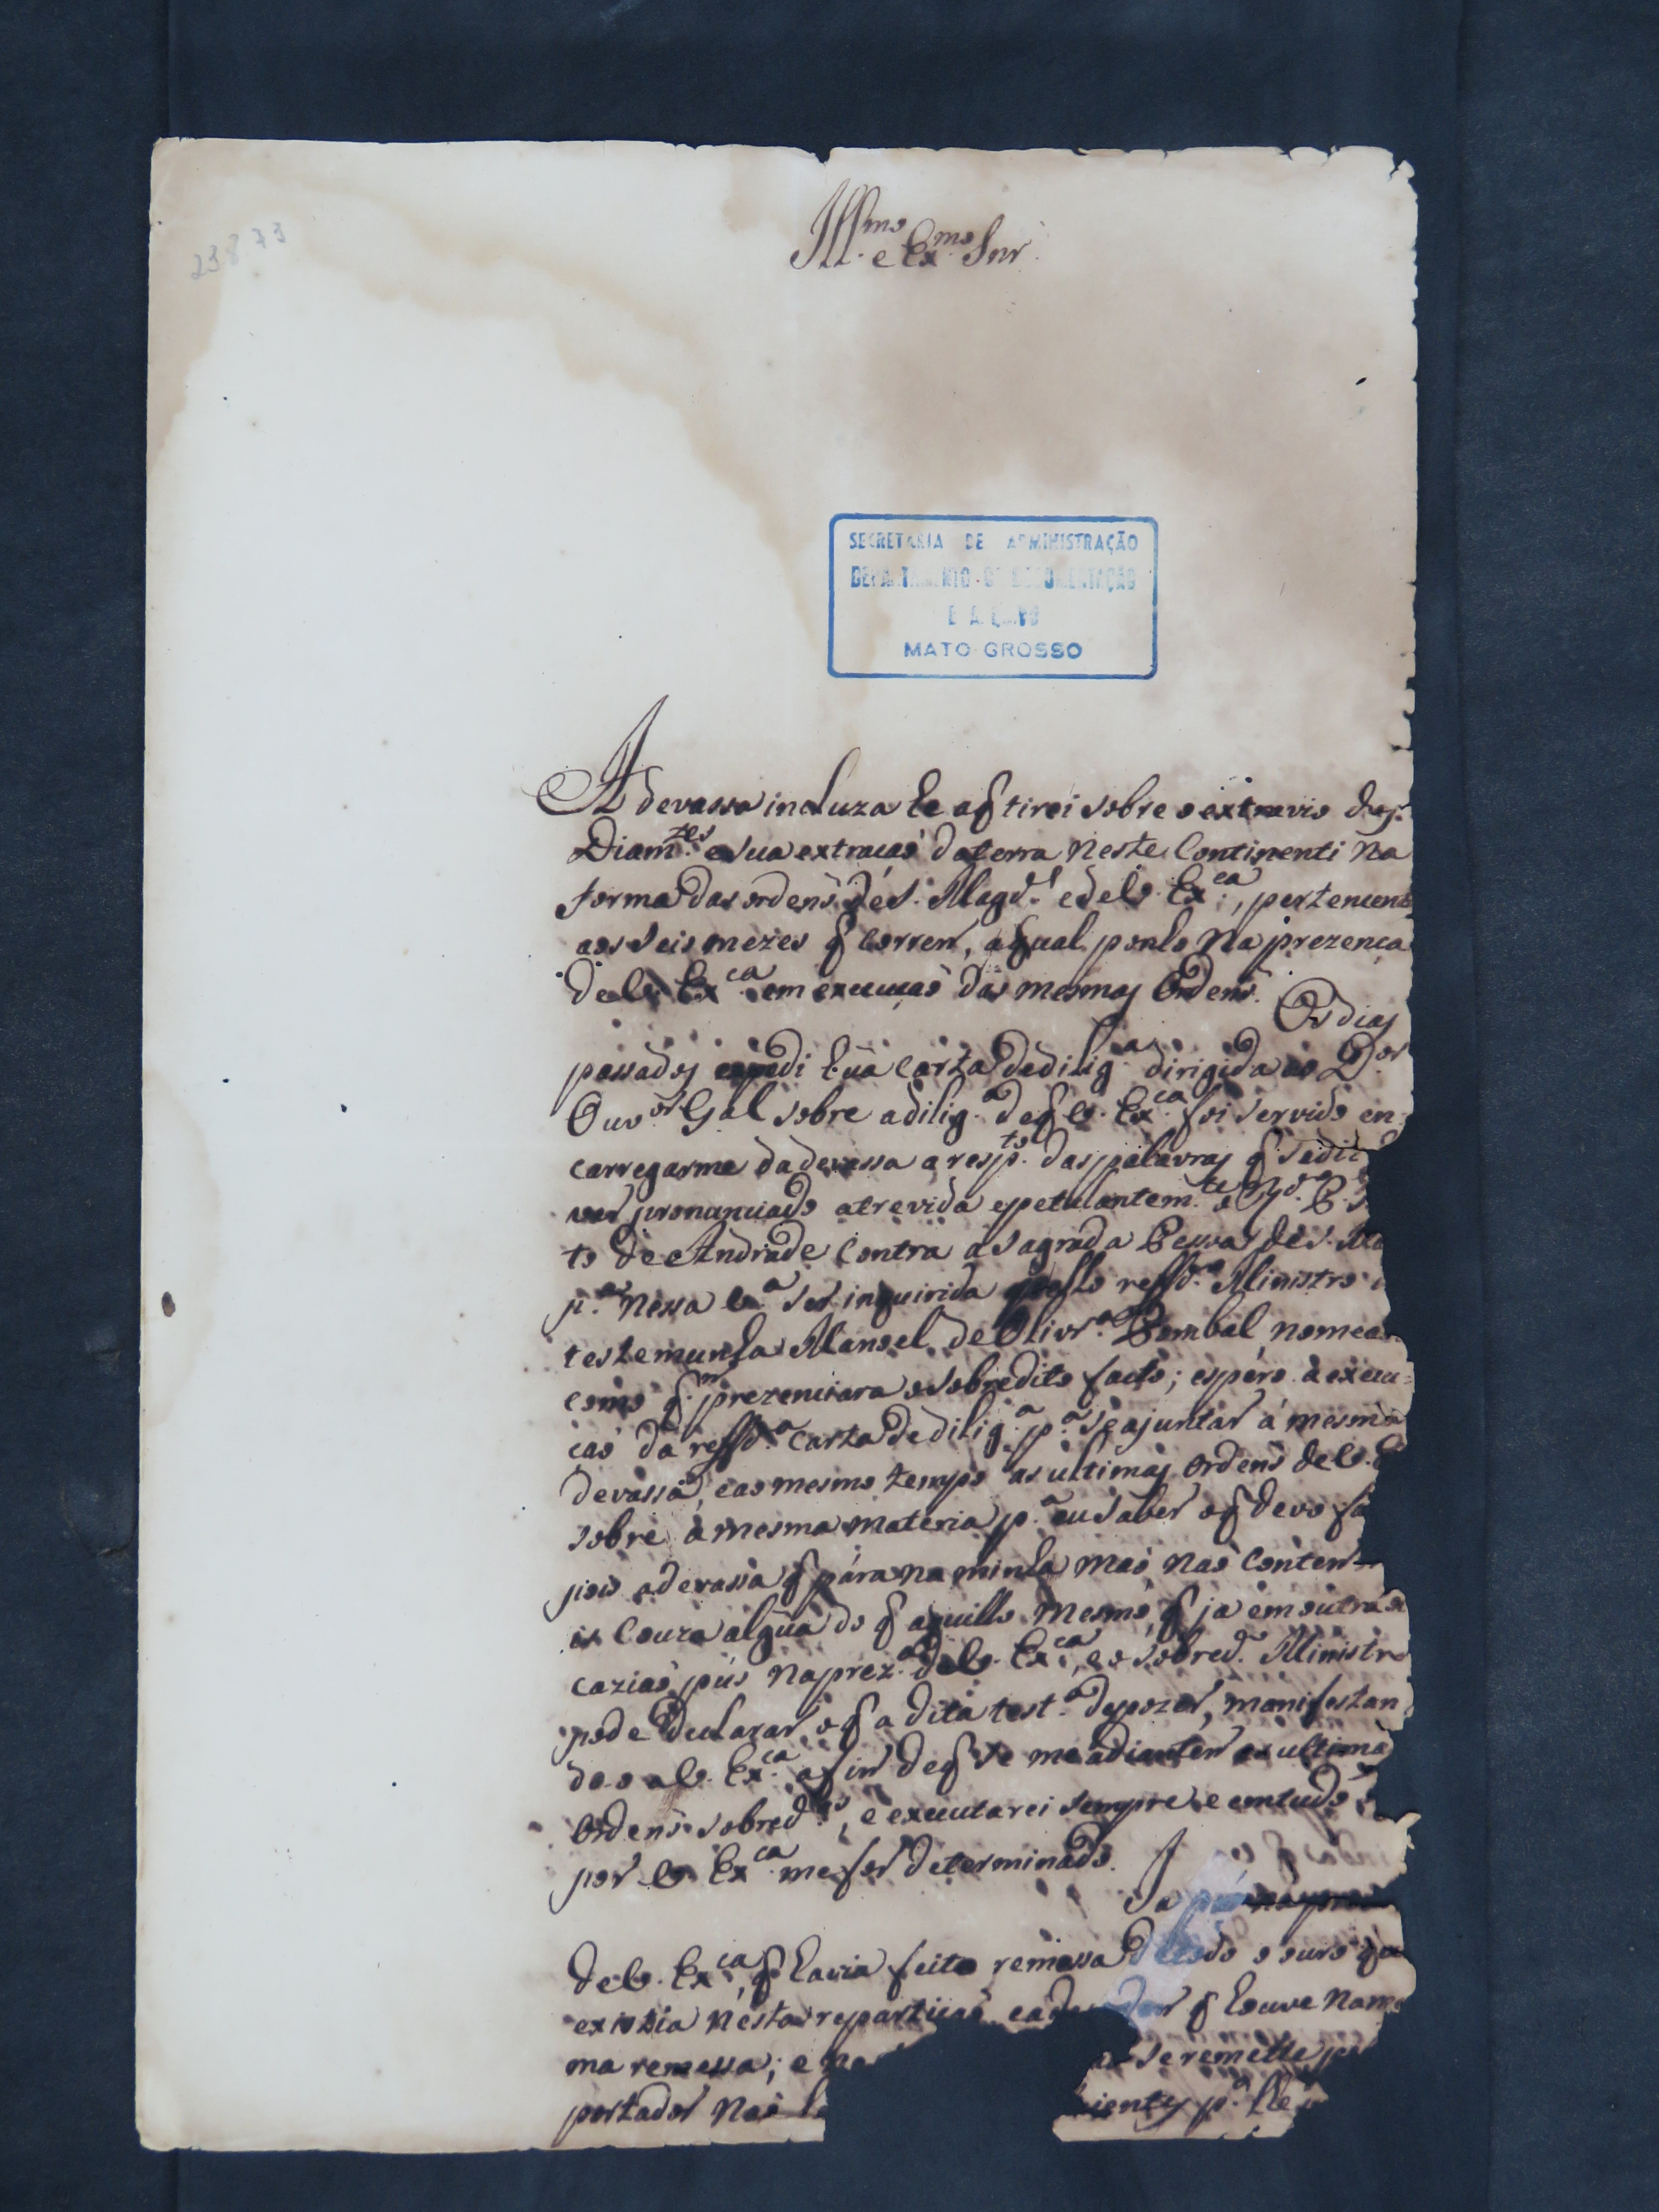 23873
Ill.mo e Ex.mo Snr.
SECRETARIA DE ADMINISTRAÇÃO
DEPARTAMENTO DE DOCUMENTAÇÃO
E A
MATO GROSSO
A devassa incluza he a q tirei sobre o extravio dos
Diam.tes e sua extracaõ da terra neste Continenti na
forma das ordens de S. Mag.de e de V. Ex.ca, pertencent
aos seis mezes q correm, a qual ponho na prezenca
de V. Ex.ca em execucaõ das mesmas Ordens.
Os dias
passados expedi hũa carta de dilig.a dirigida ao D.or
Ouv.or Gal sobre a dilig.a de q V. Ex.ca foi servido en-
carregarme da devassa a resp.to das palavras q se diz
ver pronunciado atrevida e petulantem.te o
to de Andrade contra a Sagrada Pessoa de S. Ma
p.a nessa V.a ser inquirida pello reff.do Ministro
testemunha Manoel de Olivr.a Pombal, nomea
como q.m prezenciara o sobredito facto; espero a execu=
caõ da reff.da carta de dilig.a p.a se ajuntar á mesma
devassa, e ao mesmo tempo as ultimas ordens de V. E
sobre a mesma materia p.a eu saber o q devo fa
pois a devassa q pára na minha maõ naõ contem
is couza algũa do q aquillo mesmo q ja em outra o
caziaõ pús na prez.a de V. Ex.ca, e o sobred.o Ministro
pode declarar o q a dita test.a depozer, manifestan
do o a V. Ex.ca afim de q se me adiantem as ultima
ordens sobred.as, e executarei sempre e em tudo
por V. Ex.ca me for determinado.
Ja pús na prez
de V. Ex.ca, q havia feito remessa de todo o ouro que
existia nesta repartiçaõ, e a q houve na me
ma remessa; e se remette por
portador naõ h ientes p.a lhe